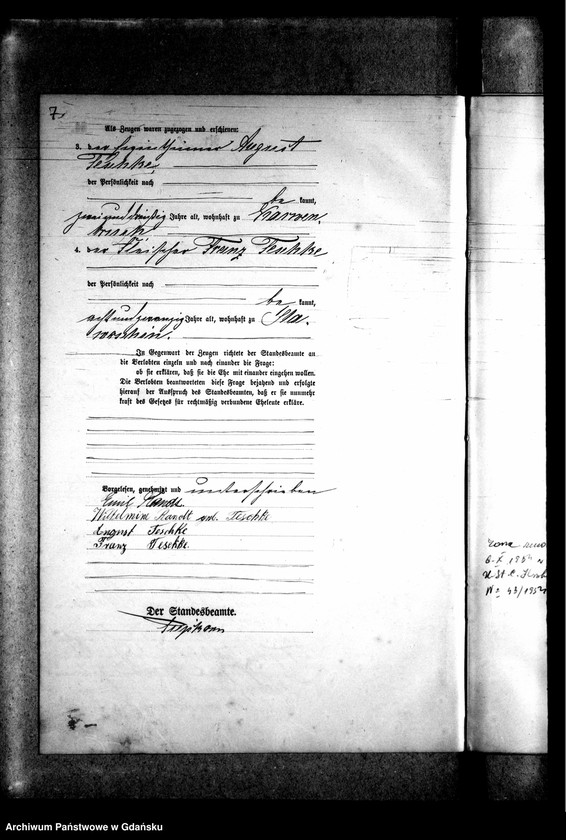 7.
Als Zeugen waren zugezogen und erschienen:
3. der August
Teschke,
der Persönlichkeit nach
be kannt,
zweiunddreißig Jahre alt, wohnhaft zu Karwen-
bruch
4. der Fleischer Franz Teschke
der Persönlichkeit nach
be kannt,
achtundzwanzig Jahre alt, wohnhaft zu Sla-
woschin.
In Gegenwart der Zeugen richtete der Standesbeamte an
die Verlobten einzeln und nach einander die Frage:
ob sie erklären, daß sie die Ehe mit einander eingehen wollen.
Die Verlobten beantworteten diese Frage bejahend und erfolgte
hierauf der Ausspruch des Standesbeamten, daß er sie nunmehr
kraft des Gesetzes für rechtmäßig verbundene Eheleute erkläre.
Vorgelesen, genehmigt und unterschrieben
Emil Mandt
Wilhelmine Mandt geb. Teschke
August Teschke
Franz Teschke.
Der Standesbeamte.
Nr 43/1952
Archiwum Państwowe w Gdańsku